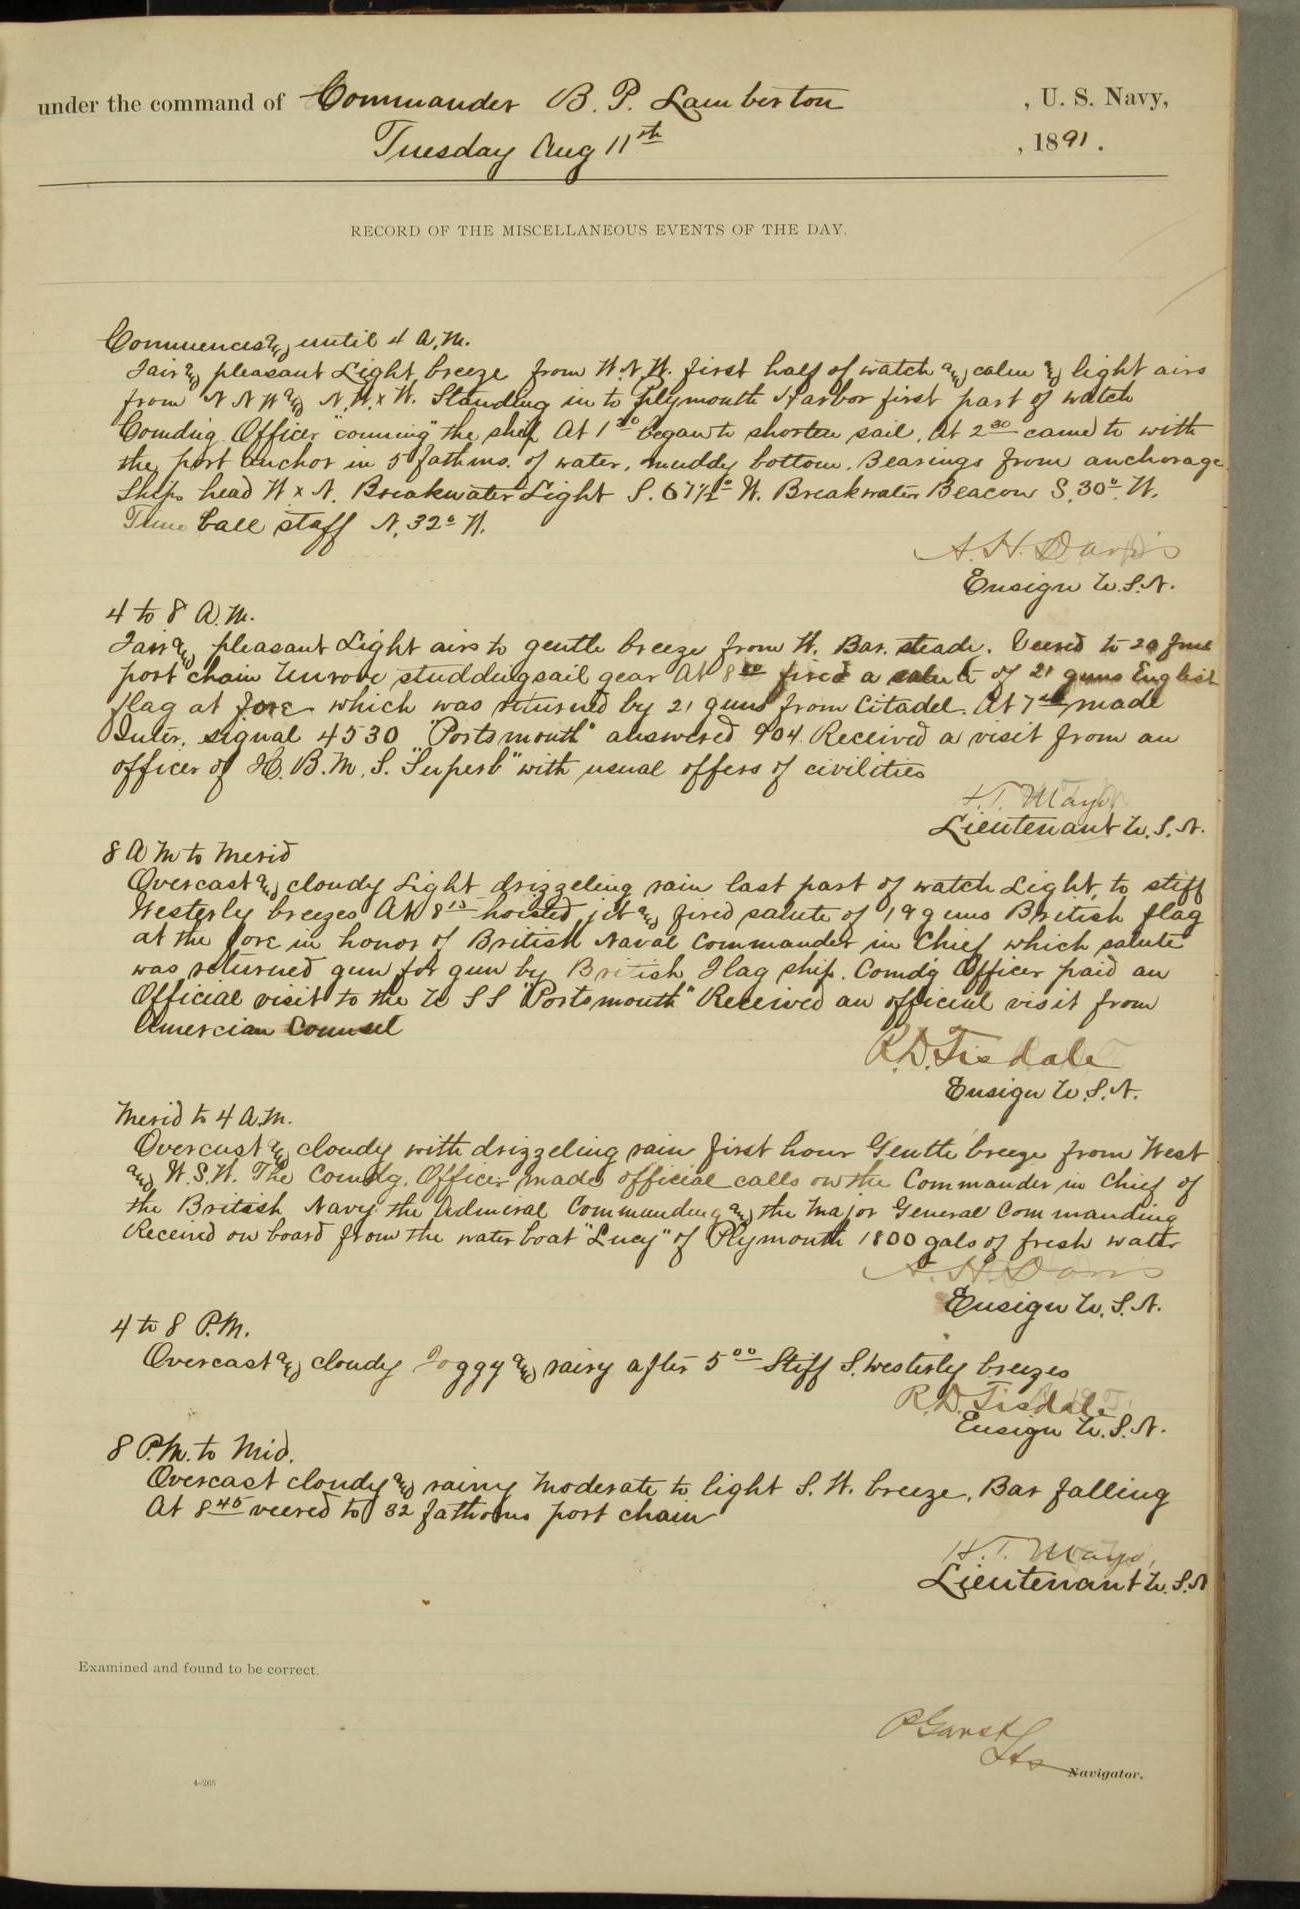 under the command of Commander B. P. Lamberton , U. S. Navy,
Tuesday Aug 11th , 1891.
RECORD OF THE MISCELLANEOUS EVENTS OF THE DAY.
Commences and until 4 A.M.
Fair and pleasant Light breeze from W.N.W. first half of watch and calm and light airs
from N N W and N.W. x W. Standing in to Plymouth Harbor first part of watch
Comdng Officer "conning" the ship At 1 30 began to shorten sail. At 2 30 came to with
the port anchor in 5 fathms. of water, muddy bottom. Bearings from anchorage
Ships head W x N. Breakwater Light S. 67 1/2° W. Breakwater Beacon S. 30° W.
Time ball staff N. 32° W.
A. H. Davis
Ensign U.S.N.
4 to 8 A.M.
Fair and pleasant Light airs to gentle breeze from W. Bar. steady. Veered to 20 fms
port chain Unrove studdingsail gear At 8 fired a salute of 21 guns English
flag at fore which was returned by 21 guns from Citadel. At 7 made
Inter. signal 4530 "Portsmouth" answered 904. Received a visit from an
officer of H. B. M. S. "Superb" with usual offers of civilities
H. T. Mayo,
Lieutenant U. S. N.
8 A M to Merid
Overcast and cloudy Light drizzeling rain last part of watch Light to stiff
Westerly breezes At 8 15 hoisted jib and fired salute of 19 guns British flag
at the fore in honor of British Naval Commander in Chief which salute
was returned gun for gun by British Flag ship. Comdg Officer paid an
Official visit to the U S S "Portsmouth" Received an official visit from
Amercian Counsel
R. D. Tisdale
Ensign U.S.N.
Merid to 4 A.M.
Overcast and cloudy with drizzeling rain first hour Gentle breeze from West
and W.S.W. The Comdg. Officer made official calls on the Commander in Chief of
the British Navy the Admiral Commanding and the Major General Commanding
Received on board from the water boat "Lucy" of Plymouth 1800 gals of fresh water
A. H. Davis
Ensign U. S. N.
4 to 8 P.M.
Overcast and cloudy Foggy and rainy after 5 00 Stiff S. Westerly breezes
R. D. Tisdale
Ensign U. S. N.
8 P.M. to Mid.
Overcast cloudy and rainy Moderate to light S. W. breeze, Bar falling
At 8 45 veered to 32 fathoms port chain
H. T. Mayo,
Lieutenant U. S. N
Examined and found to be correct.
P Garst
Navigator.
4-265